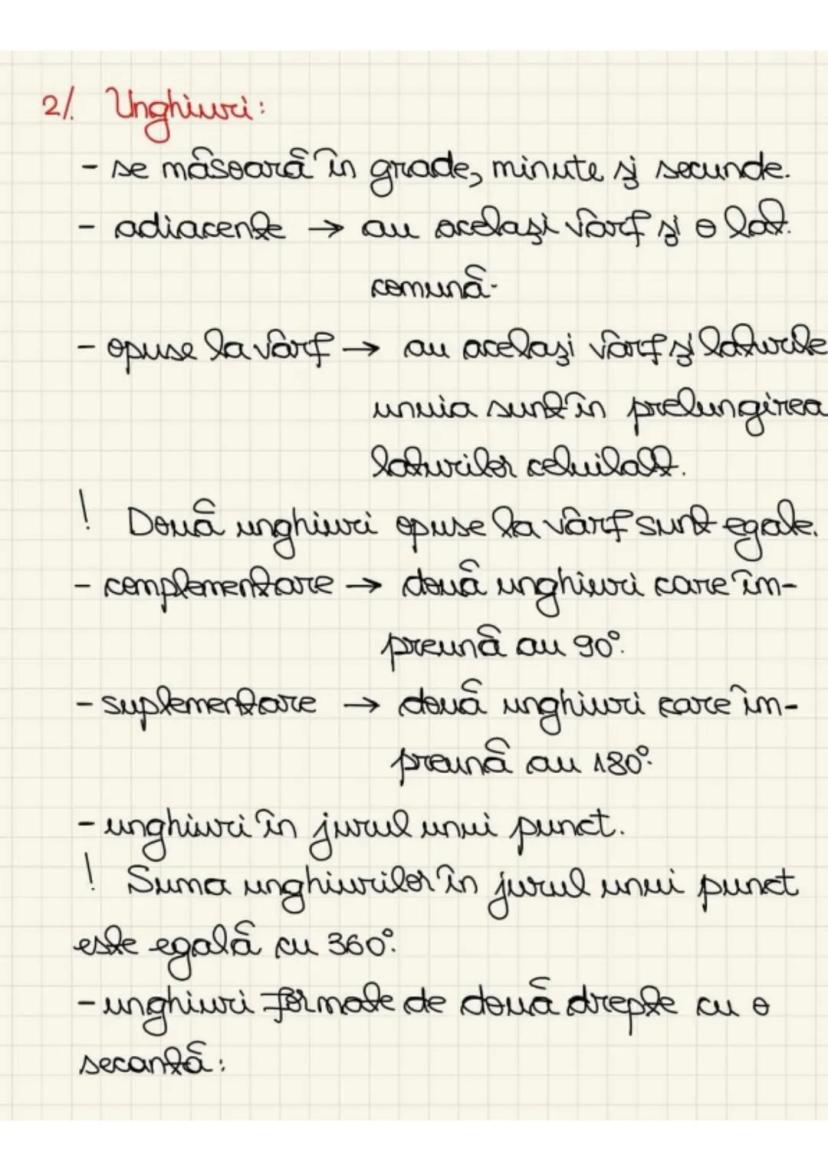 2/. Unghiuri:
- se măsoară în grade, minute și secunde.
- adiacente → au același vârf și o lat.
comună.
- opuse la vârf → au același vârf și laturile
unuia sunt în prelungirea
laturilor celuilalt.
! Două unghiuri opuse la vârf sunt egale.
- complementare → două unghiuri care îm-
preună au 90°.
- suplementare → două unghiuri care îm-
preună au 180°.
- unghiuri în jurul unui punct.
! Suma unghiurilor în jurul unui punct
este egală cu 360°.
- unghiuri formate de două drepte cu o
secantă: